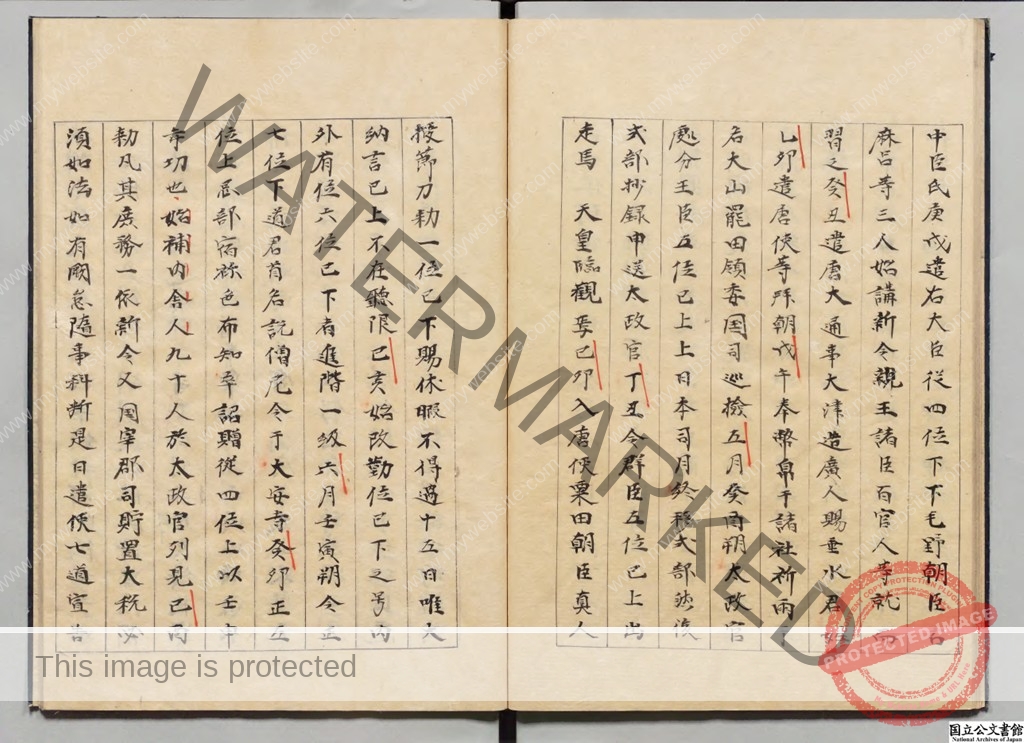 中臣氏庚戌遣右大臣従四位下下毛野朝臣古
麻呂等三人始講新令親王諸臣百官人等就而
習之癸丑遣唐大通事大津造廣人賜垂水君姓
乙夘遣唐使等拜朝戊午奉幣帛于諸社祈雨
名大山罷田領委国司巡檢五月癸酉朔太政官
處分王臣五位已上上日本司月終移式部然後
式部抄録申送太政官丁丑令群臣五位已上出
走馬 天皇臨觀焉已夘入唐使粟田朝臣真人
授節刀勅一位已下賜休暇不得過十五日唯大
納言已上不在聽限已亥始改勤位已下之号内
外有位六位已下者進階一級六月壬寅朔令正
七位下道君首名説僧尼令于大安寺癸夘正五
位上忌部宿祢色布知卒詔贈從四位上以壬申
年功也始補内舎人九十人於太政官列見已酉
勅凡其庶務一依新令又国宰郡司貯置大税必
須如法如有闕怠隨事科断是日遣使七道宣告
WATERMARKED
PROTECTED IMAGE
This image is protected
国立公文書館
National Archives of Japan